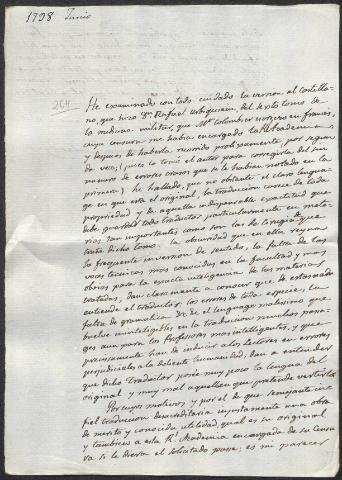 1798 Junio
264
He examinado con todo cuidado la version al castella-
no, que hizo Dn. Rafael del sexto tomo de
la medicina militar, que Mr. Colombier escrivió en frances,
cuya censura me habia encargado la Rl. Academia,
y despues de haberla recorrido prolixamente, por segun
da vez, (pues la tomó el autor para corregirla del sin
numero de errores crasos que se le habian notado en la
primera) he hallado, que no obstante el claro lengua-
ge en que está el original, la traduccion carece de toda
propriedad y de aquella indispensable exactitud que
debe guardar todo traductor particularmente en mate-
rias tan importantes como son las de Cirugia que
trata dicho tomo. La obscuridad que en ella reyna
la frequente inversion de sentido, la falta de las
voces tecnicas mas conocidas en la facultad y mas
obvias para la exacta inteligencia de las materias
tratadas, dan claramente a conocer que de estas nada
entiende el traductor. los errores de toda especie, la
falta de gramatica &c. &c. el lenguage malisimo que
buelve ininteligibles en la traduccion muchos pasa-
ges aun para los Profesores mas inteligentes, y que
precisamente han de inducir a los Lectores en errores
perjudiciales a la doliente humanidad, dan a entender
que dicho Traductor posee muy poco la lengua del
original y muy mal aquella en que pretende vertirlo.
Por cuyos motivos y por el de que semejante in-
fiel traduccion desacreditaria injustamente una obra
de merito y conocida utilidad, qual es su original
y tambien a esta Rl. Academia encargada de su Censu
ra si le diera el solicitado passe; es mi parecer